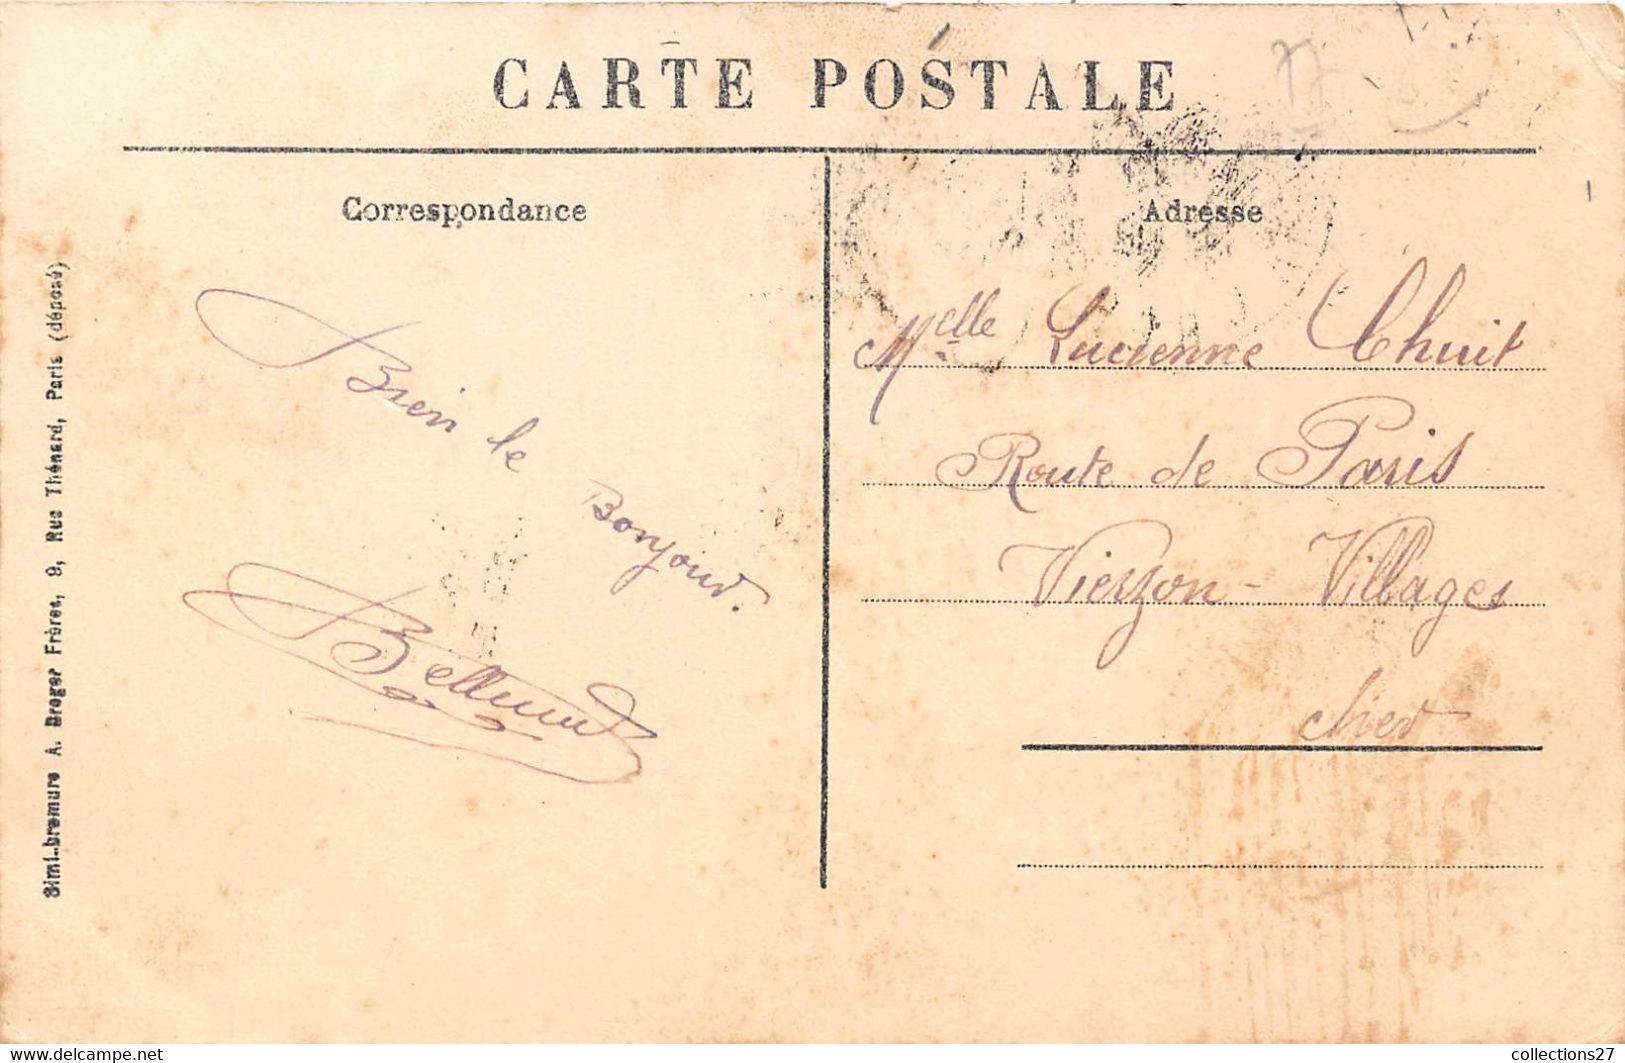 CARTE POSTALE
Correspondance
Adresse
Bien le
Bonjour.
Melle Lucienne Chuit
Route de Paris
Vierzon - Villages
Cher
Simi-bromure A. Breger Frères, 9, Rue Thénard, Paris (déposé)
77
collections27